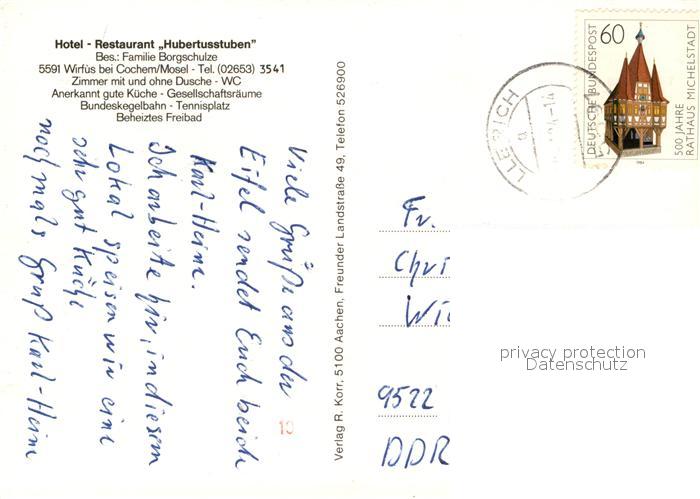 Hotel - Restaurant „Hubertusstuben"
Bes.: Familie Borgschulze
5591 Wirfüs bei Cochem/Mosel - Tel. (02653) 3541
Zimmer mit und ohne Dusche - WC
Anerkannt gute Küche - Gesellschaftsräume
Bundeskegelbahn - Tennisplatz
Beheiztes Freibad
Viele Grüße aus der
Eifel sendet Euch beide
Karl-Heinz.
Ich arbeite hir, in diesem
Lokal speisen wir eine
sehr gut Küche
nochmals Gruß Karl-Heinz
19
Verlag R. Korr, 5100 Aachen, Freunder Landstraße 49, Telefon 526900
DEUTSCHE BUNDESPOST
60
500 JAHRE
RATHAUS MICHELSTADT
1984
LLERICH
a
Fr.
Chri
Wi
9522
DDR
privacy protection
Datenschutz